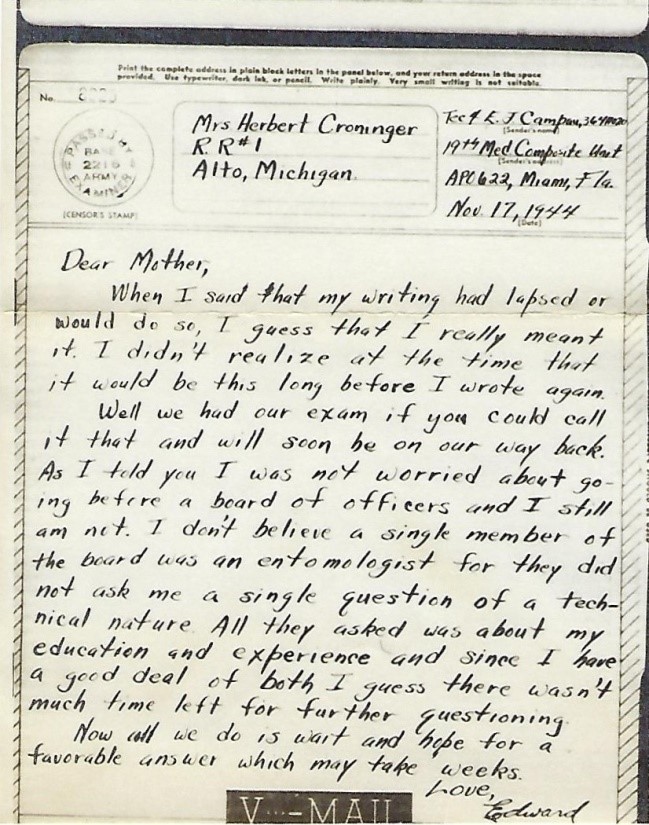 Print the complete address in plain block letters in the panel below, and your return address in the space
provided. Use typewriter, dark ink, or pencil. Write plainly. Very small writing is not suitable.
No.
PASSED BY
BASE
2216
ARMY
EXAMINER
(CENSOR'S STAMP)
Mrs Herbert Croninger
R.R#1
Alto, Michigan.
Tec 4 E. J Campau,
(Sender's name)
19th Med Composite Unit
(Sender's address)
APO 622, Miami, Fla.
Nov. 17, 1944
(Date)
Dear Mother,
When I said that my writing had lapsed or
would do so, I guess that I really meant
it. I didn't realize at the time that
it would be this long before I wrote again.
Well we had our exam if you could call
it that and will soon be on our way back.
As I told you I was not worried about go-
ing before a board of officers and I still
am not. I don't believe a single member of
the board was an entomologist for they did
not ask me a single question of a tech-
nical nature. All they asked was about my
education and experience and since I have
a good deal of both I guess there wasn't
much time left for further questioning.
Now all we do is wait and hope for a
favorable answer which may take weeks.
Love,
Edward
V···-MAIL